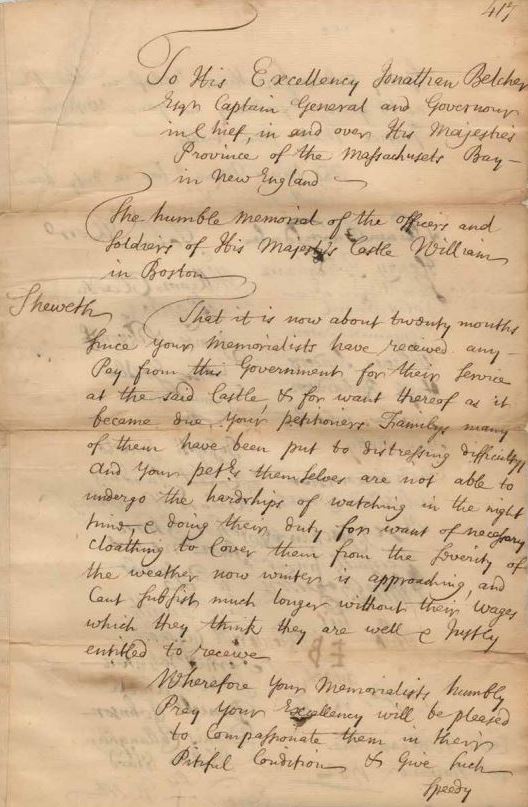 417
To His Excellency Jonathan Belcher
Esqr Captain General and Governour
in Chief, in and over His Majesties
Province of the Massachusets Bay
in New England
The humble memorial of the officers and
Soldiers of His Majestys Castle William
in Boston
Sheweth
That it is now about twenty months
Since your Memorialists have received any
Pay from this Government for their Service
at the said Castle, & for want thereof as it
became due your petitioners Familys many
of them have been put to distressing difficultys
And your petrs themselves are not able to
undergo the hardships of watching in the night
time, & doing their duty for want of necessary
cloathing to Cover them from the Severity of
the weather now winter is approaching, and
Cant Subsist much longer without their Wages
which they think they are well & Justly
entitled to receive
Wherefore your Memorialists humbly
Pray your Excellency will be pleased
to Compassionate them in their
Pitiful Condition & Give Such
Speedy